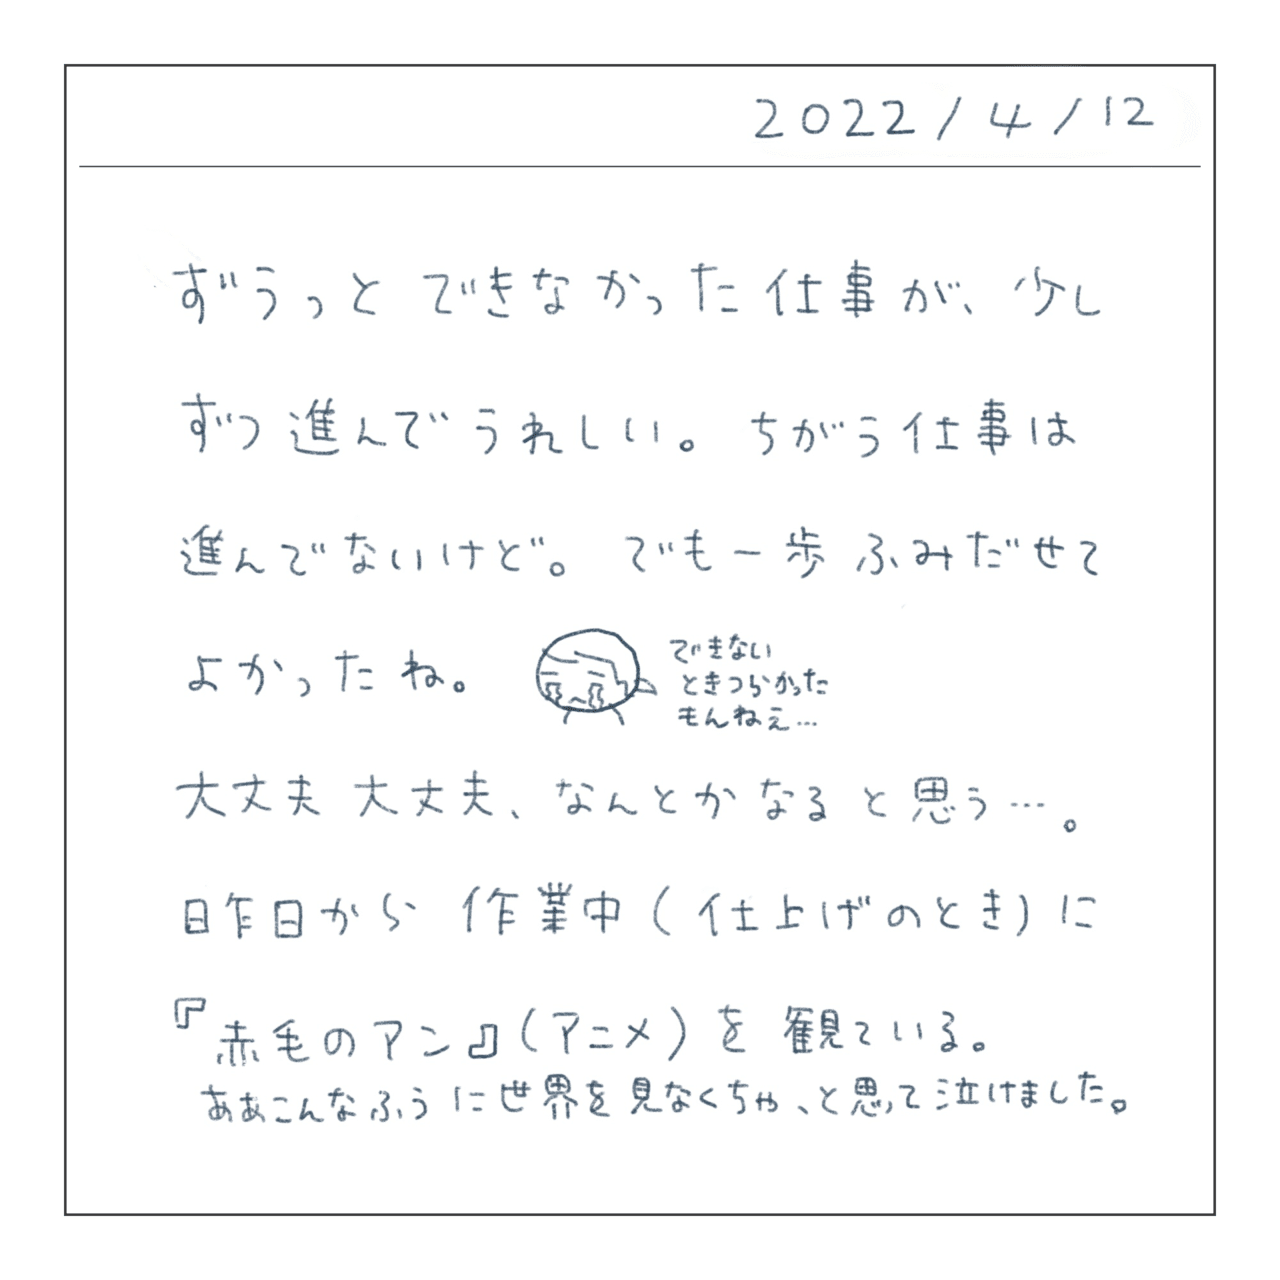 2022/4/12
ずうっとできなかった仕事が、少し
ずつ進んでうれしい。ちがう仕事は
進んでないけど。でも一歩ふみだせて
よかったね。
できない
ときつらかった
もんねえ…
大丈夫大丈夫、なんとかなると思う…。
日昨日から作業中(仕上げのとき)に
『赤毛のアン』(アニメ)を観ている。
ああこんなふうに世界を見なくちゃ、と思って泣けました。